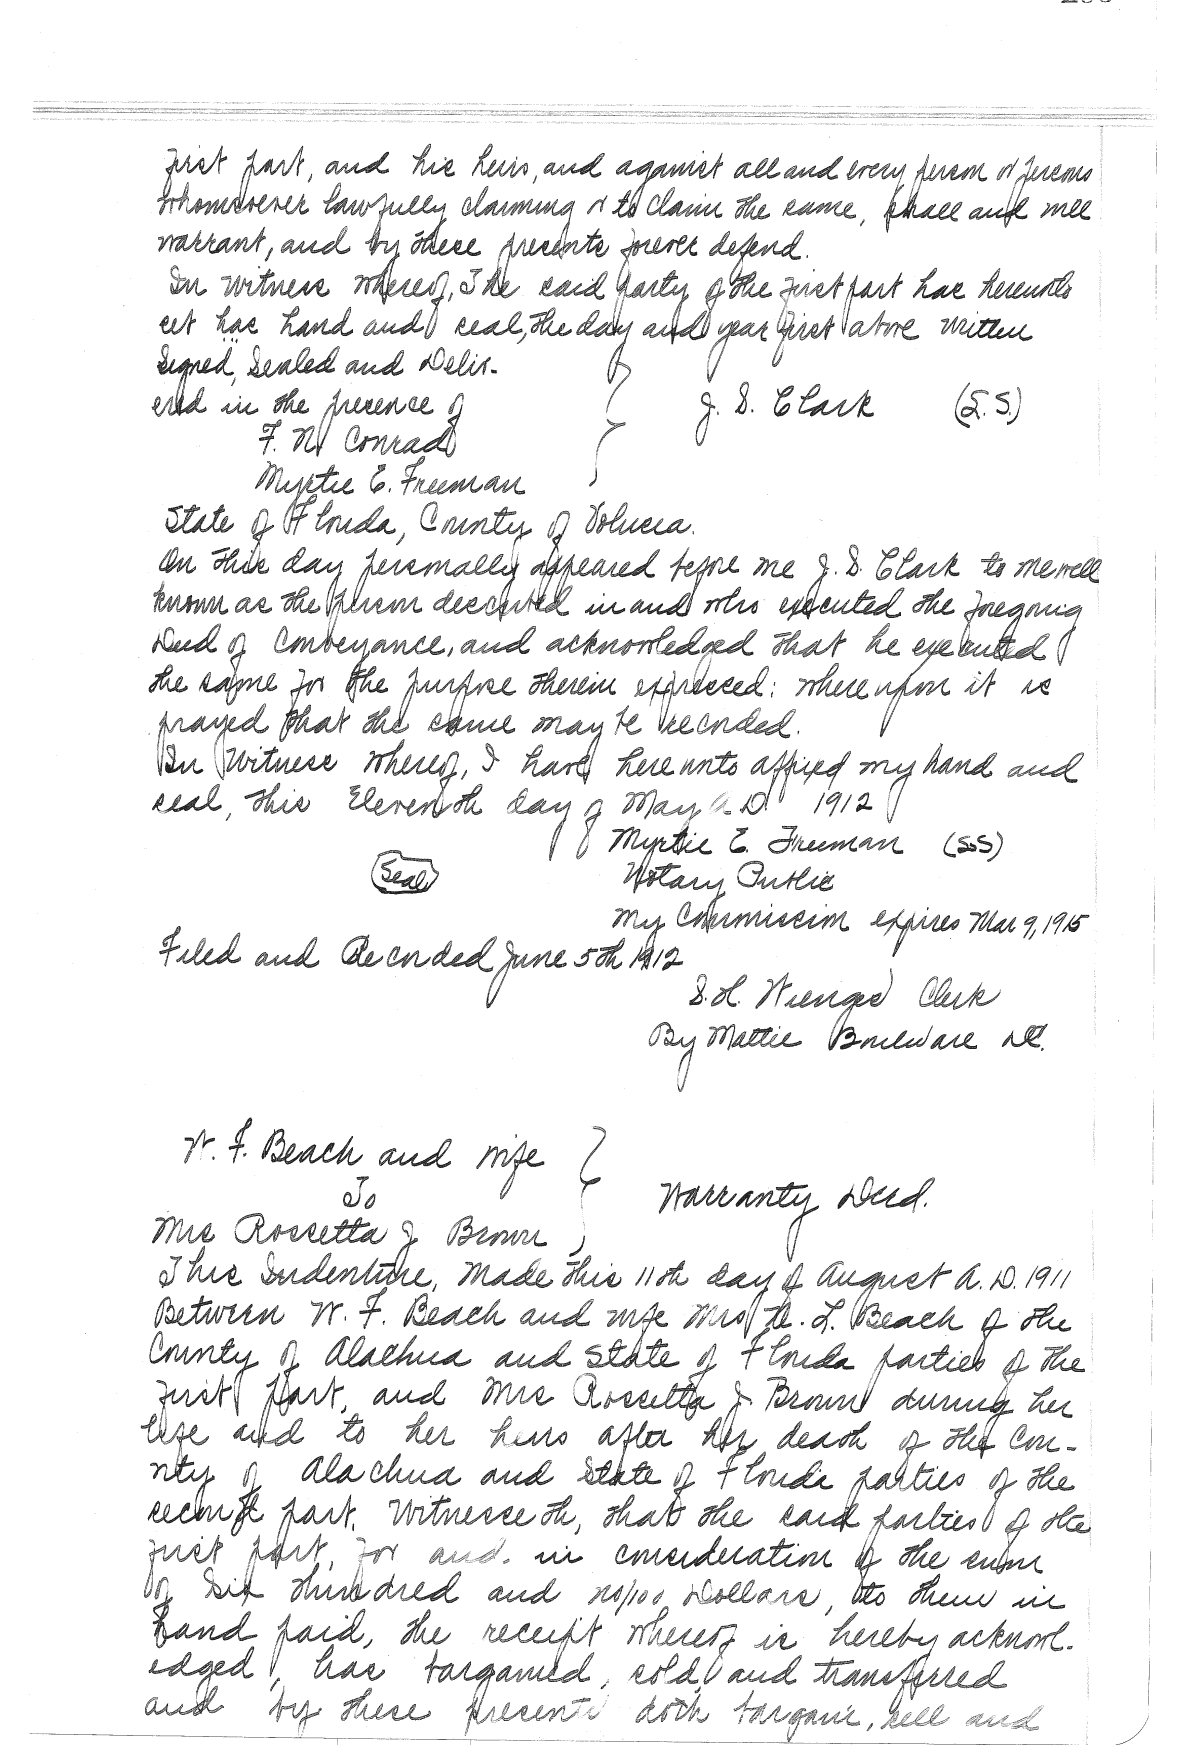 first part, and his heirs, and against all and every person or persons
whomsoever lawfully claiming or to claim the same, shall and will
warrant, and by these presents forever defend.
In Witness whereof, The said party of the first part has hereunto
set has hand and seal, the day and year first above written
Signed, Sealed and Deliv-
ered in the presence of
J. S. Clark (L. S.)
F. N. Conrad
Myrtie E. Freeman
State of Florida, County of Volusia.
On this day personally appeared before me J. S. Clark to me well
known as the person described in and who executed the foregoing
Deed of Conveyance, and acknowledged that he executed
the same for the purpose therein expressed: whereupon it is
prayed that the same may be recorded.
In Witness whereof, I have hereunto affixed my hand and
seal, this Eleventh day of May A. D. 1912
Myrtie E. Freeman (S.S)
Seal
Notary Public
My Commission expires Mar 9, 1915
Filed and Recorded June 5th 1912
S. H. Wienges Clerk
By Mattie Boulware D.C.
W. F. Beach and wife
To
Warranty Deed.
Mrs Rossetta J Brown
This Indenture, Made this 11th day of August A. D. 1911
Between W. F. Beach and wife Mrs L. Beach of the
County of Alachua and State of Florida parties of the
first part, and Mrs Rossetta J. Brown during her
life and to her heirs after her death of the Cou-
nty of Alachua and State of Florida parties of the
second part. Witnesseth, that the said parties of the
first part, for and. in consideration of the sum
of Six Hundred and no/100 Dollars, to them in
hand paid, the receipt whereof is hereby acknowl-
edged, has bargained, sold, and transferred
and by these presents doth bargain, sell and